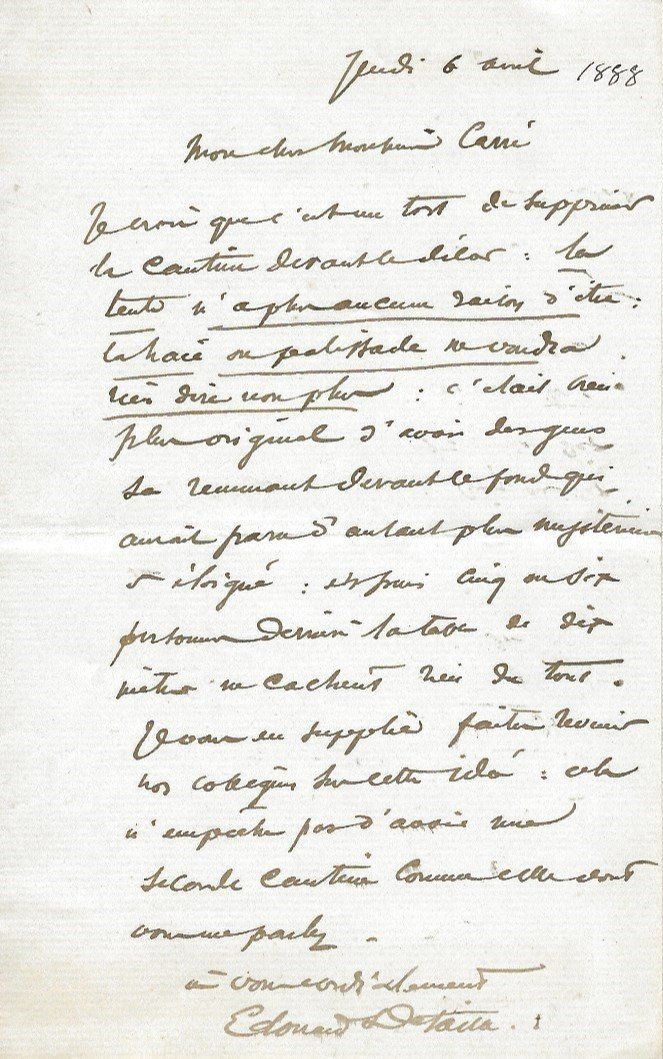 Jeudi 6 avril 1888
Mon cher Monsieur Carré
Je crois que c'est un tort de supprimer
la cantine devant le décor : la
tente n'a plus aucune raison d'être :
la haie ou palissade ne voudra
rien dire non plus : c'était bien
plus original d'avoir des gens
se remuant devant le fond qui
aurait paru d'autant plus mystérieux
& éloigné : et puis cinq ou six
personnes derrière la table de dix
mètres ne cachent rien du tout.
Je vous en supplie faites revenir
nos collègues sur cette idée : cela
n'empêche pas d'avoir une
seconde cantine comme celle dont
vous me parlez.
à vous cordialement
Edouard Detaille.